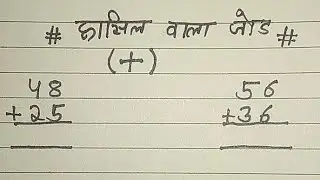 # हासिल वाला जोड #
(+)
48 56
+25 +36